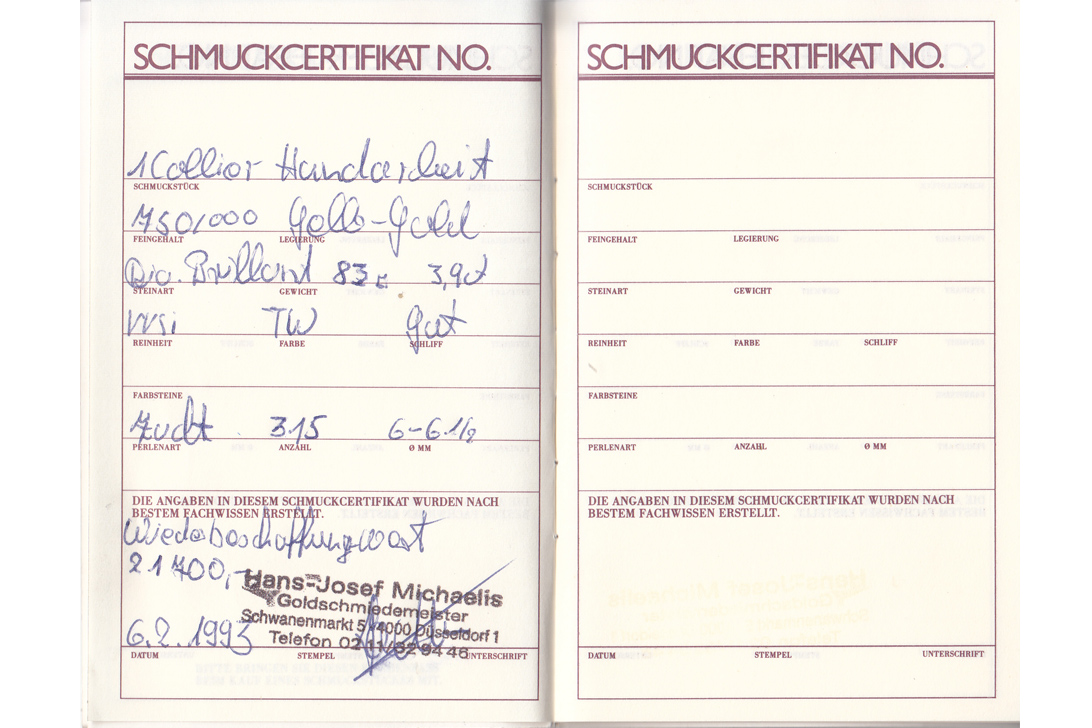 SCHMUCKCERTIFIKAT NO.
1 Collier Handarbeit
SCHMUCKSTÜCK
750/000 Gelb-Gold
FEINGEHALT LEGIERUNG
Dia. Brillant 83 3,9ct
STEINART GEWICHT
VVSi TW Gut
REINHEIT FARBE SCHLIFF
FARBSTEINE
Zucht 315 6-6 1/2
PERLENART ANZAHL Ø MM
DIE ANGABEN IN DIESEM SCHMUCKCERTIFIKAT WURDEN NACH
BESTEM FACHWISSEN ERSTELLT.
Wiederbeschaffungswert
21 700,-
Hans-Josef Michaelis
Goldschmiedemeister
Schwanenmarkt 5 4000 Düsseldorf 1
Telefon 02 11/32 94 46
6.2.1993
DATUM STEMPEL UNTERSCHRIFT
SCHMUCKCERTIFIKAT NO.
SCHMUCKSTÜCK
FEINGEHALT LEGIERUNG
STEINART GEWICHT
REINHEIT FARBE SCHLIFF
FARBSTEINE
PERLENART ANZAHL Ø MM
DIE ANGABEN IN DIESEM SCHMUCKCERTIFIKAT WURDEN NACH
BESTEM FACHWISSEN ERSTELLT.
DATUM STEMPEL UNTERSCHRIFT